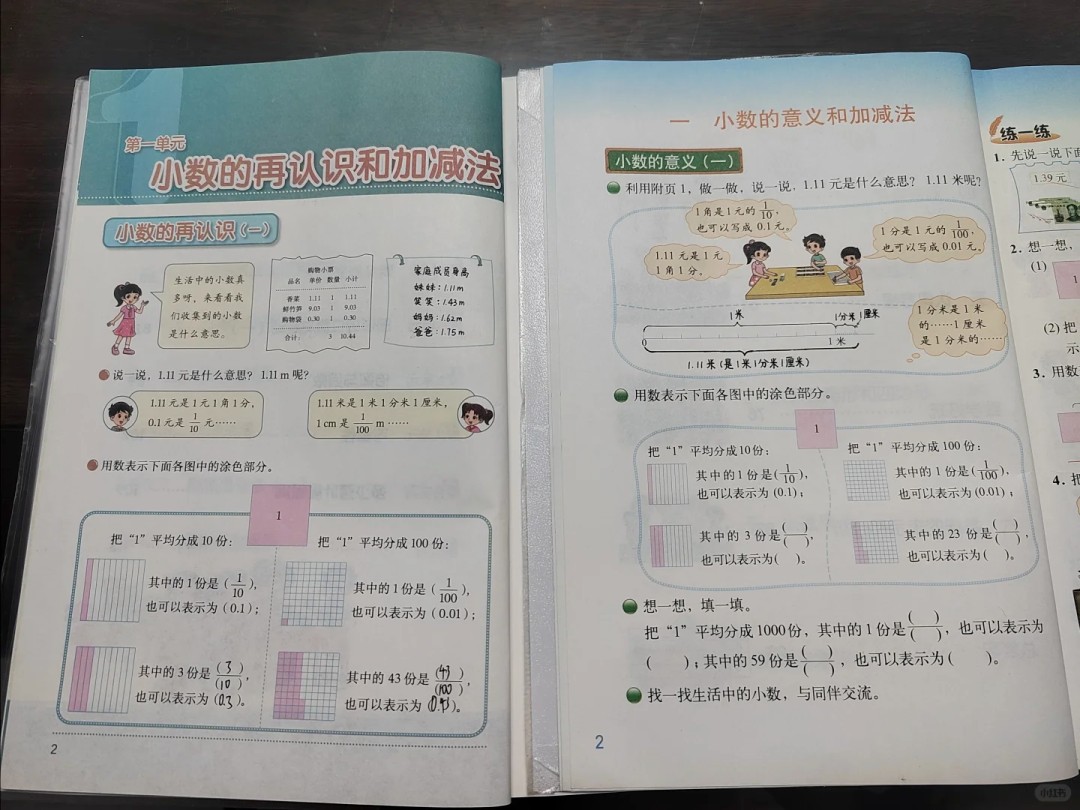 第一单元
小数的再认识和加减法
小数的再认识(一)
生活中的小数真
多呀，来看看我
们收集到的小数
是什么意思。
购物小票
品名 单价 数量 小计
香菜 1.11 1 1.11
鲜竹笋 9.03 1 9.03
购物袋 0.30 1 0.30
合计： 3 10.44
家庭成员身高
妹妹：1.11m
笑笑：1.43m
妈妈：1.62m
爸爸：1.75m
说一说，1.11元是什么意思？1.11m呢？
1.11元是1元1角1分，
0.1元是1/10元……
1.11米是1米1分米1厘米，
1cm是1/100m……
用数表示下面各图中的涂色部分。
1
把“1”平均分成10份：
其中的1份是(1/10)，
也可以表示为(0.1)；
其中的3份是(3)/(10)，
也可以表示为(0.3)。
把“1”平均分成100份：
其中的1份是(1/100)，
也可以表示为(0.01)；
其中的43份是(43)/(100)，
也可以表示为(0.43)。
2
一 小数的意义和加减法
小数的意义(一)
利用附页1，做一做，说一说，1.11元是什么意思？1.11米呢？
1角是1元的1/10，
也可以写成0.1元。
1.11元是1元
1角1分。
1分是1元的1/100，
也可以写成0.01元。
1米 1分米 1厘米
0 1米
1.11米(是1米1分米1厘米)
1分米是1米
的……1厘米
是1分米的……
用数表示下面各图中的涂色部分。
1
把“1”平均分成10份：
其中的1份是(1/10)，
也可以表示为(0.1)；
其中的3份是( )/( )，
也可以表示为( )。
把“1”平均分成100份：
其中的1份是(1/100)，
也可以表示为(0.01)；
其中的23份是( )/( )，
也可以表示为( )。
想一想，填一填。
把“1”平均分成1000份，其中的1份是( )/( )，也可以表示为
( )；其中的59份是( )/( )，也可以表示为( )。
找一找生活中的小数，与同伴交流。
2
练一练
1. 先说一说下面
1.39元
2. 想一想，
(1)
1
(2) 把
示
3. 用数
4. 把
小红书